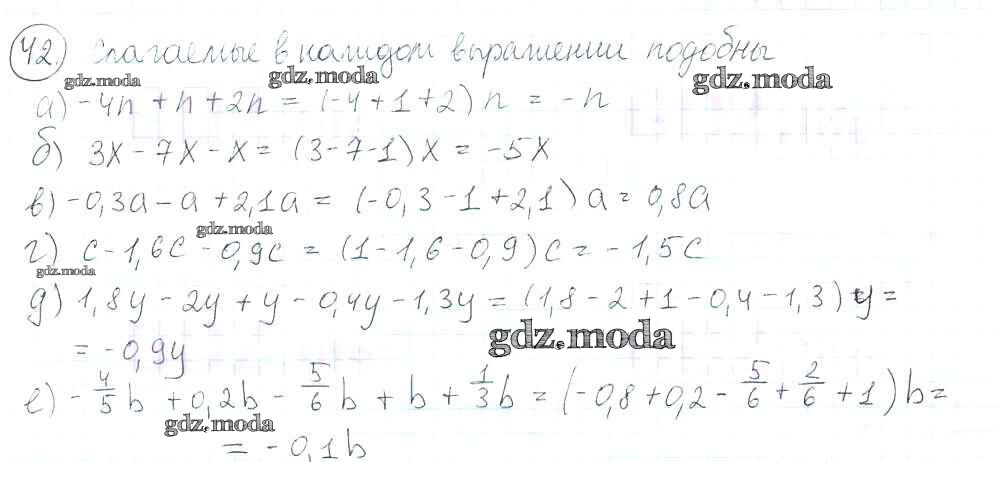 42. Слагаемые в каждом выражении подобны
gdz.moda gdz.moda gdz.moda
а) -4n + n + 2n = (-4+1+2) n = -n
б) 3x - 7x - x = (3-7-1) x = -5x
в) -0,3a - a + 2,1a = (-0,3-1+2,1) a = 0,8a
gdz.moda
г) c - 1,6c - 0,9c = (1-1,6-0,9) c = -1,5c
gdz.moda
д) 1,8y - 2y + y - 0,4y - 1,3y = (1,8-2+1-0,4-1,3) y =
gdz.moda
= -0,9y
е) - 4/5 b + 0,2b - 5/6 b + b + 1/3 b = (-0,8+0,2 - 5/6 + 2/6 + 1) b =
gdz.moda
= -0,1b